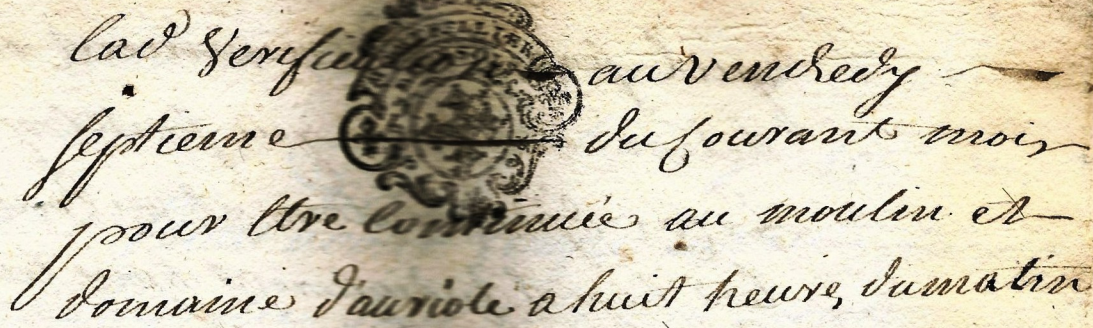 lad Verification au vendredy
septieme du Courant mois
pour etre Continuée au moulin et
domaine d'auriole a huit heures du matin